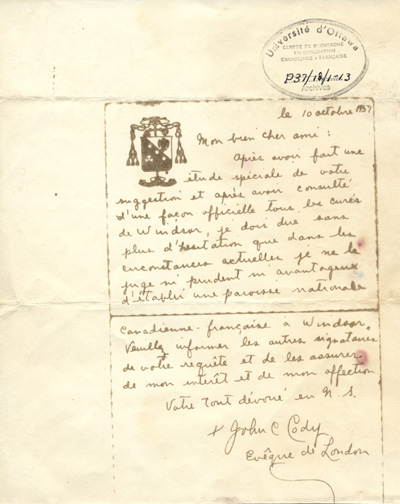 Université d'Ottawa
CENTRE DE RECHERCHE
EN CIVILISATION
CANADIENNE-FRANÇAISE
P37/18/1.13
Archives
le 10 octobre 1957
Mon bien cher ami :
Après avoir fait une
étude spéciale de votre
suggestion et après avoir consulté
d'une façon officielle tous les curés
de Windsor, je dois dire sans
plus d'hésitation que dans les
circonstances actuelles je ne le
juge ni prudent ni avantageux
d'établir une paroisse nationale
Canadienne-française à Windsor.
Veuillez informer les autres signataires
de votre requête et de les assurer
de mon intérêt et de mon affection
Votre tout dévoué en N. S.
+ John C Cody
Evêque de London